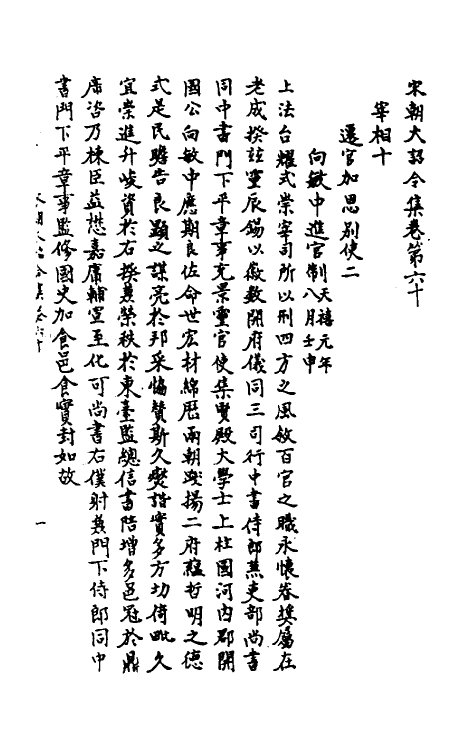 宋朝大詔令集卷第六十
宰相十
遷官加恩别使二
向敏中進官制天禧元年八月壬申
上法台耀式崇宰司所以刑四方之風敘百官之職永懷眷奬屬在
老成揆茲靈辰錫以徽數開府儀同三司行中書侍郎兼吏部尚書
同中書門下平章事充景靈宮使集賢殿大學士上柱國河内郡開
國公向敏中應期良佐命世宏材綿歷兩朝踐揚二府蘊哲明之德
式是民瞻告良顯之謀亮於邦采協贊斯久燮諧實多方切倚毗久
宜崇進升峻資於右揆兼榮秩於東臺監總信書陪增多邑冠於鼎
席咨乃棟臣益懋嘉庸輔宣至化可尚書右僕射兼門下侍郎同中
書門下平章事監修國史加食邑食實封如故
大詔令集卷六十
一